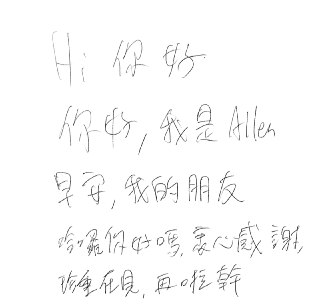 Hi 你好
你好,我是Allen
早安,我的朋友
哈囉你好嗎,衷心感謝
珍重在見,再啦幹